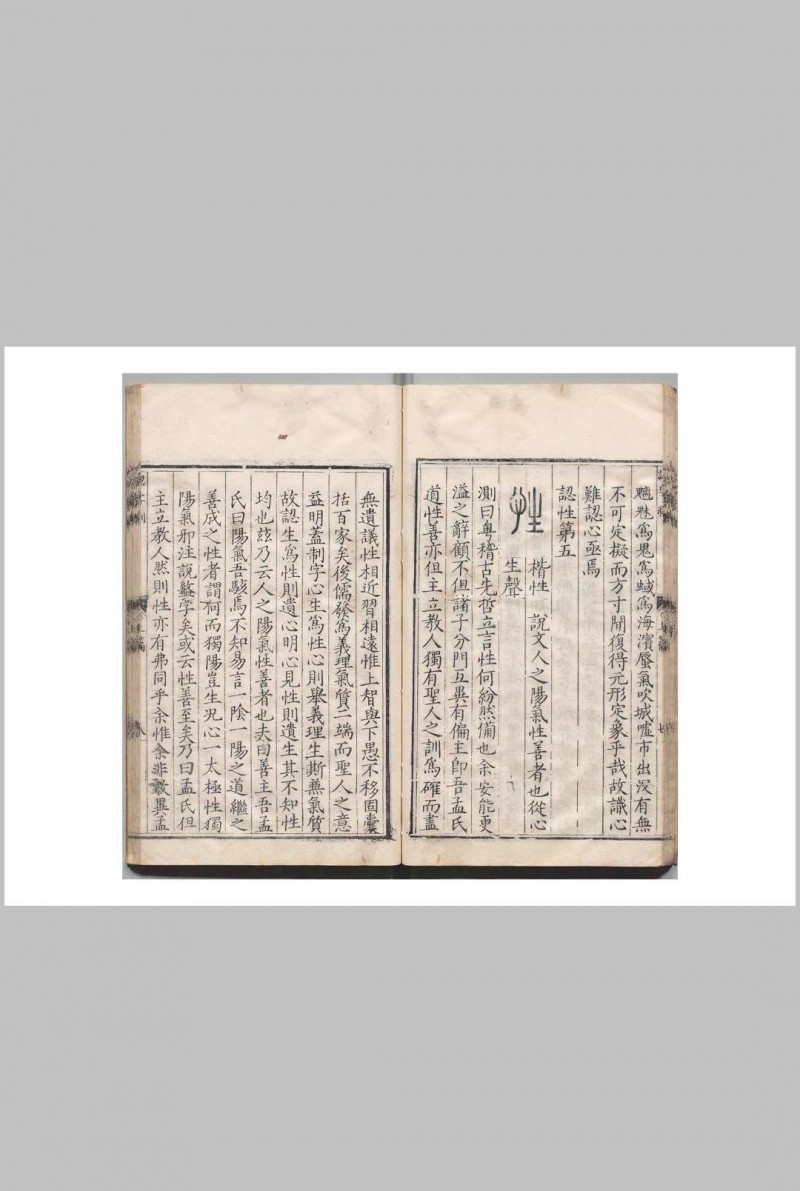 魑魅爲鬼爲蜮爲海濱蜃氣吹城噓市出沒有無
不可定擬而方寸間復得元形定象乎哉故識心
難認心亟焉
認性第五
性 楷性 說文人之陽氣性善者也從心
生聲
測曰粵稽古先哲立言性何紛然備也余安能更
溢之辭顧不但諸子分門互異有偏主卽吾孟氏
道性善亦但主立教人獨有聖人之訓爲確而盡
無遺議性相近習相遠惟上智與下愚不移固囊
括百家矣後儒發爲義理氣質二端而聖人之意
益明蓋制字心生爲性心則舉義理生斯兼氣質
故認生爲性則遺心明心見性則遺生其不知性
均也玆乃云人之陽氣性善者也夫曰善主吾孟
氏曰陽氣吾駭焉不知易言一陰一陽之道繼之
善成之性者謂何而獨陽豈生況心一太極性獨
陽氣邪注說鼇字矣或云性善至矣乃曰孟氏但
主立教人然則性亦有弗同乎余惟余非敢異孟